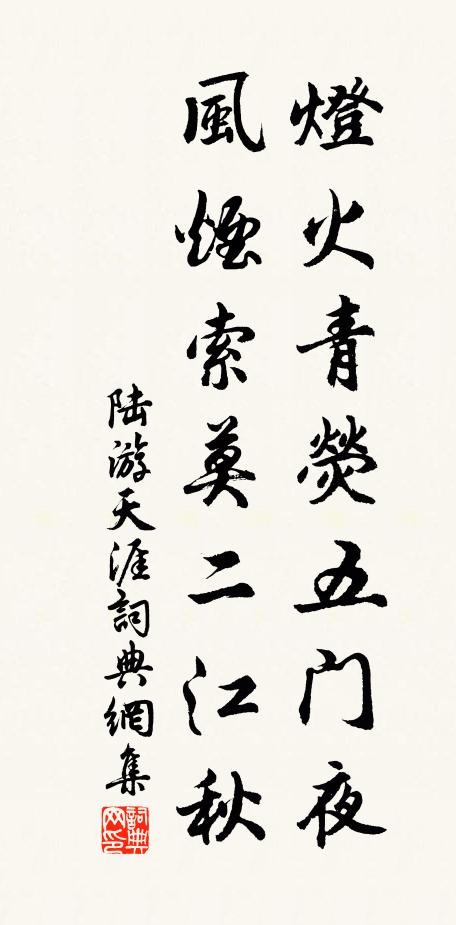 燈火青熒五门夜
風煙索莫二江秋
陆游天涯詞典網集
詞典网印